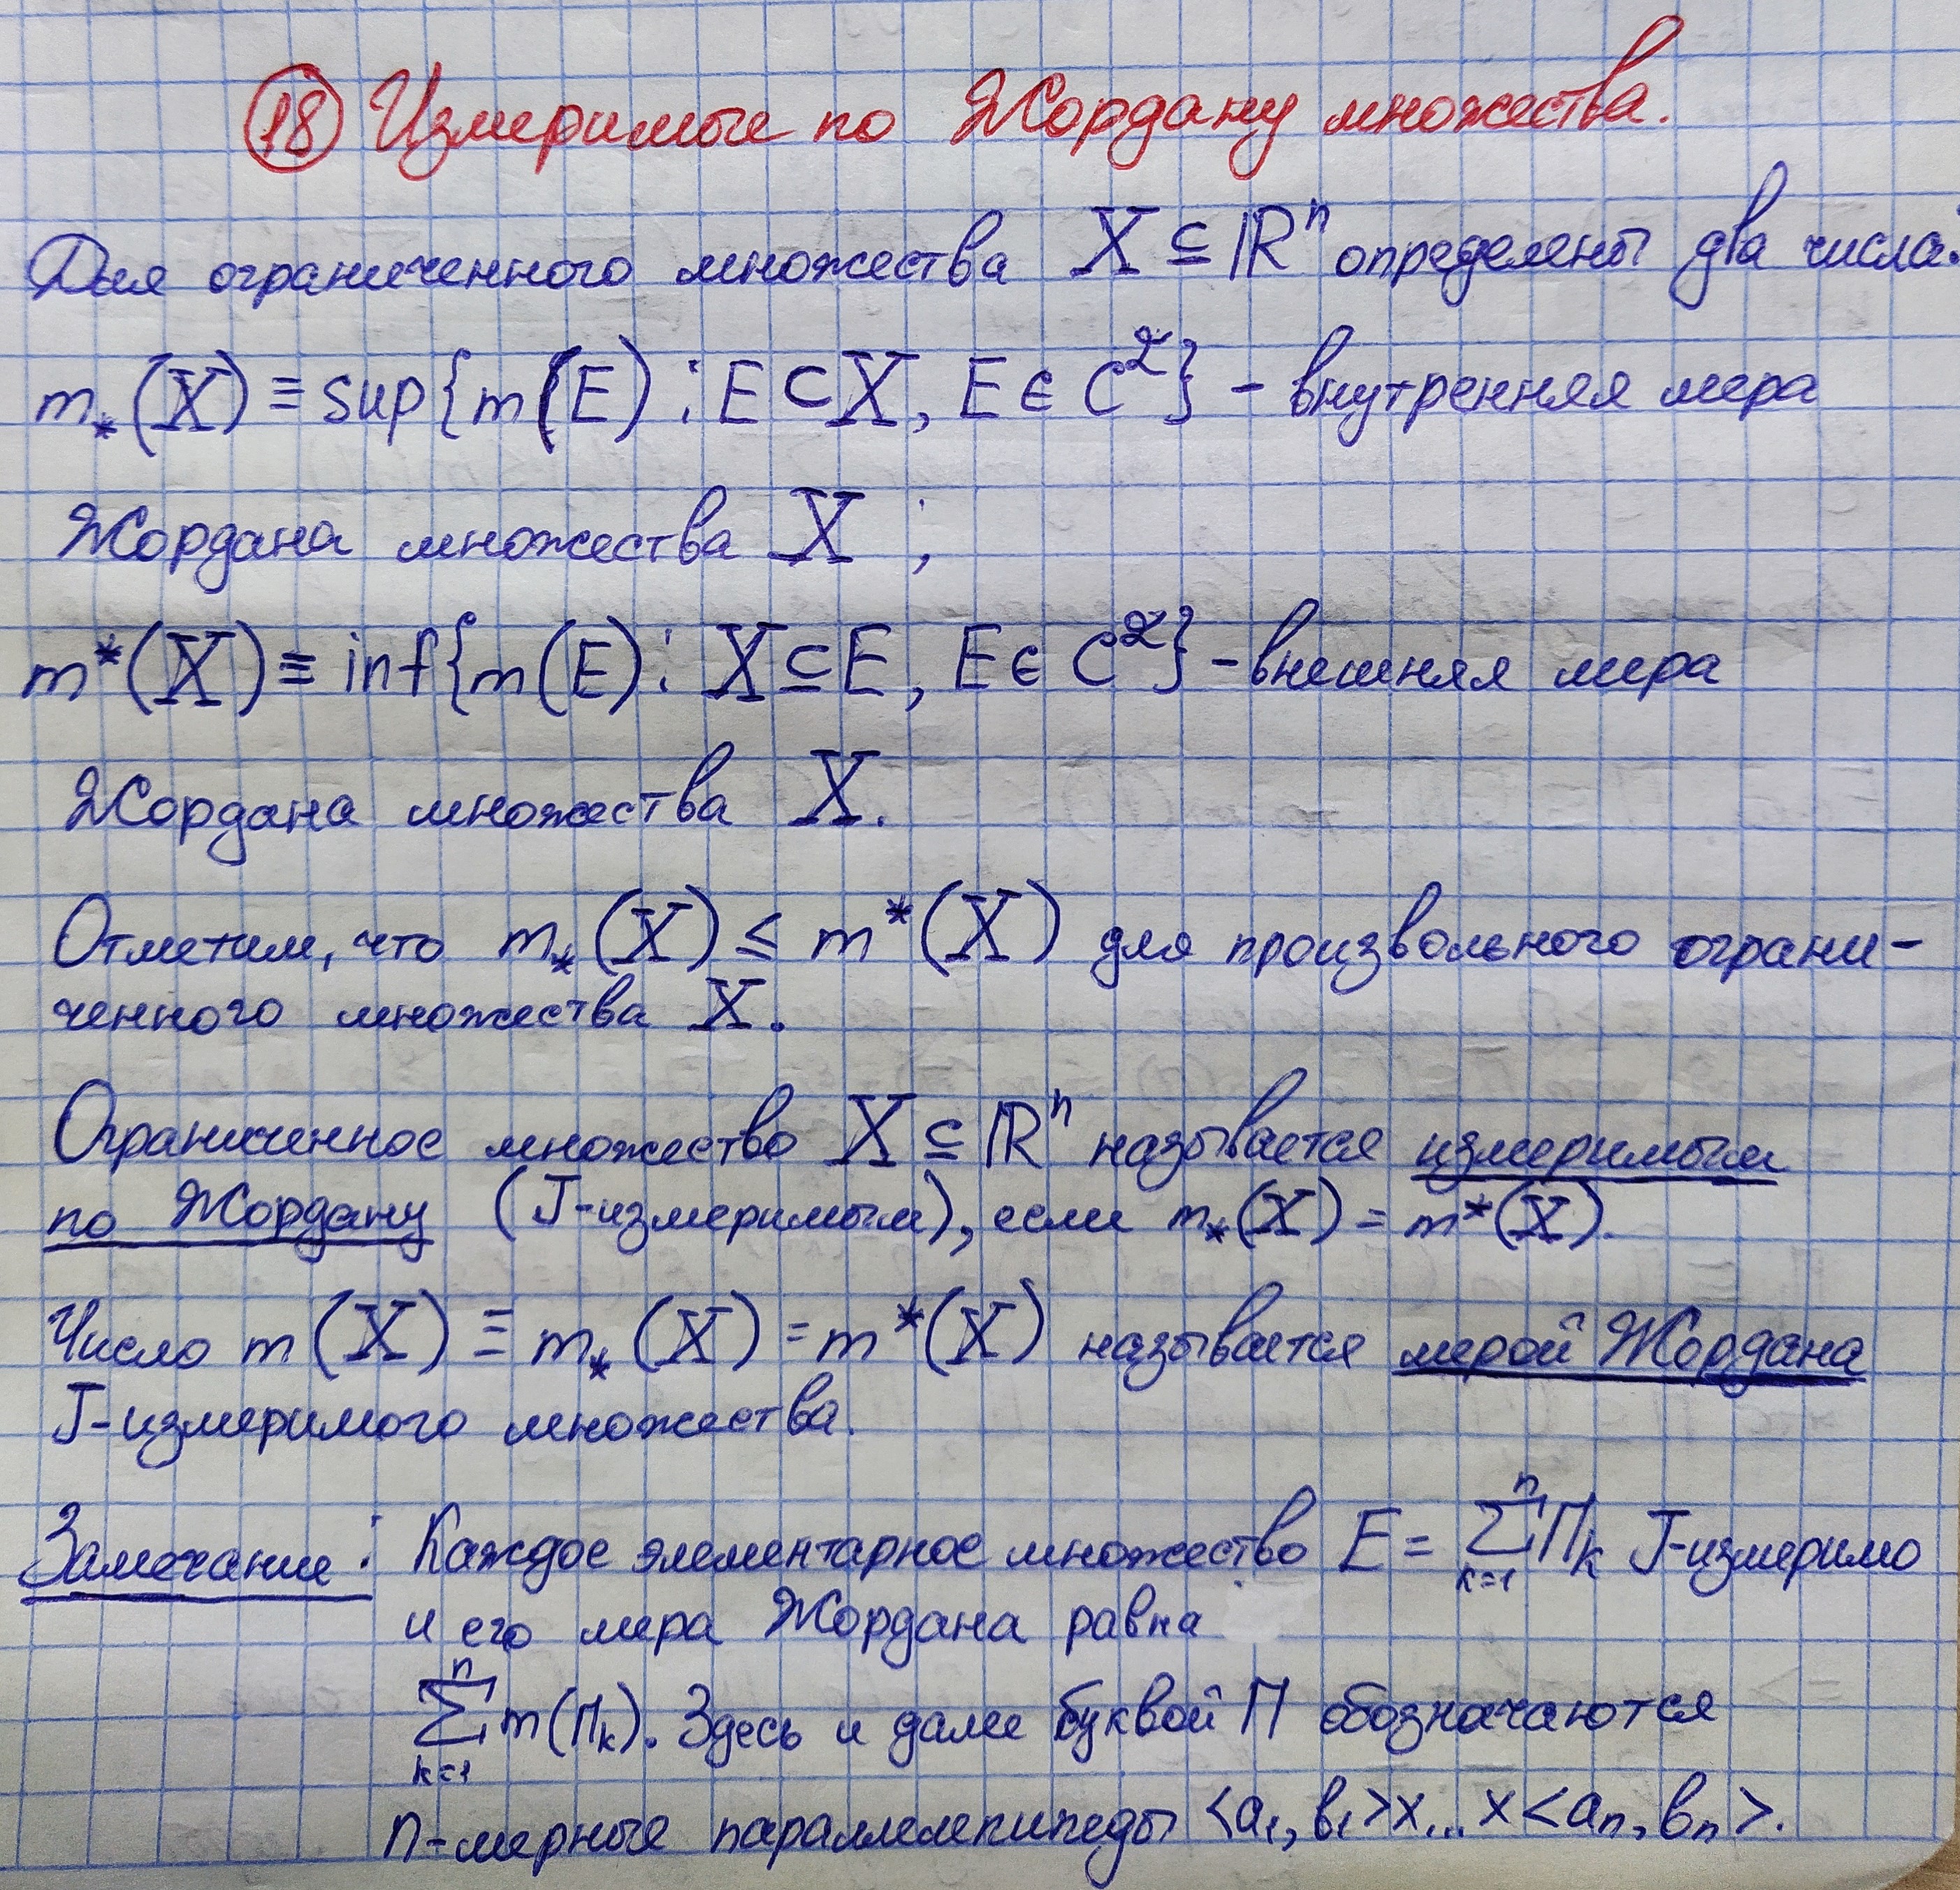 18 Измеримые по Жордану множества.
Для ограниченного множества X ⊆ ℝⁿ определены два числа:
m₎(X) ≡ sup{m(E) : E ⊂ X, E ∈ C^2} - внутренняя мера
Жордана множества X ;
m*(X) ≡ inf{m(E) : X ⊆ E, E ∈ C^2} - внешняя мера
Жордана множества X.
Отметим, что m_*(X) ≤ m*(X) для произвольного ограни-
ченного множества X.
Ограниченное множество X ⊆ ℝⁿ называется измеримым
по Жордану (J-измеримым), если m_*(X) = m*(X).
Число m(X) ≡ m_*(X) = m*(X) называется мерой Жордана
J-измеримого множества.
Замечание: Каждое элементарное множество E = ∑_{k=1}^{n} Π_k J-измеримо
и его мера Жордана равна
∑_{k=1}^{n} m(Π_k). Здесь и далее буквой Π обозначаются
n-мерные параллелепипеды <a₁, b₁>x...x<aₙ, bₙ>.